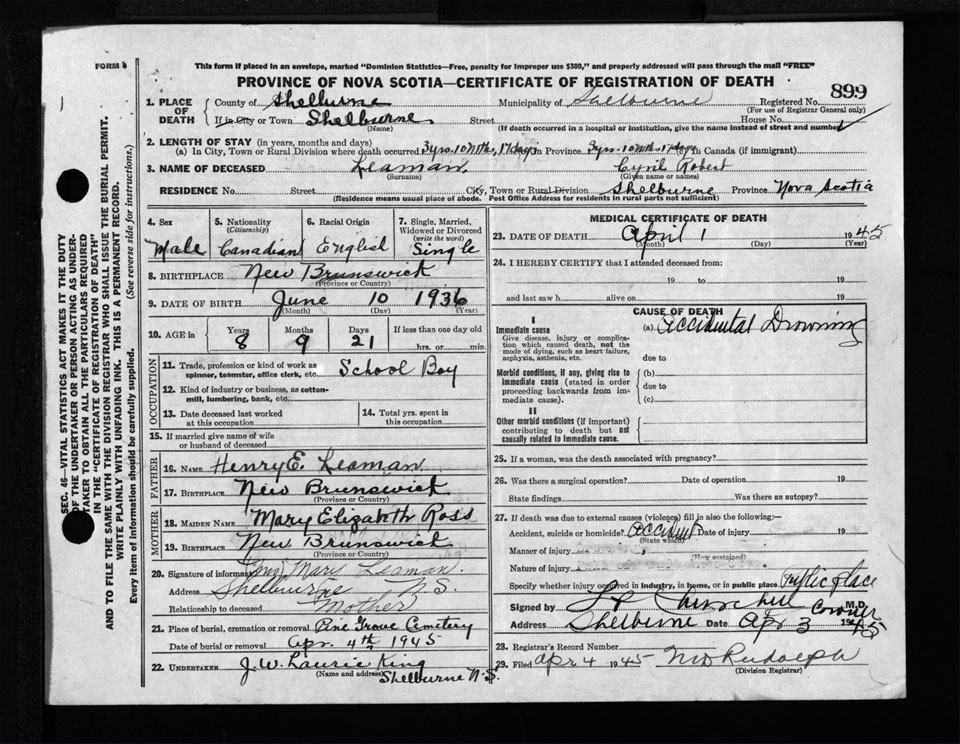 FORM 6
This form if placed in an envelope, marked "Dominion Statistics—Free, penalty for improper use $300," and properly addressed will pass through the mail "FREE"
PROVINCE OF NOVA SCOTIA—CERTIFICATE OF REGISTRATION OF DEATH
899
1. PLACE OF DEATH
County of Shelburne Municipality of Shelburne Registered No.
(For use of Registrar General only)
If in City or Town Shelburne Street House No.
(Name) (If death occurred in a hospital or institution, give the name instead of street and number)
2. LENGTH OF STAY (in years, months and days)
(a) In City, Town or Rural Division where death occurred 3 yrs. 10 mths, 17 days In Province 3 yrs. 10 mths. 17 days In Canada (if immigrant)
3. NAME OF DECEASED Leaman. Cyril Robert
(Surname) (Given name or names)
RESIDENCE No. Street City, Town or Rural Division Shelburne Province Nova Scotia
(Residence means usual place of abode. Post Office Address for residents in rural parts not sufficient)
4. Sex
Male
5. Nationality (Citizenship)
Canadian
6. Racial Origin
English
7. Single, Married, Widowed or Divorced (write the word)
Single
8. BIRTHPLACE New Brunswick
(Province or Country)
9. DATE OF BIRTH June 10 1936
(Month) (Day) (Year)
10. AGE in
Years Months Days If less than one day old
8 9 21 hrs. or min.
OCCUPATION
11. Trade, profession or kind of work as spinner, teamster, office clerk, etc. School Boy
12. Kind of industry or business, as cotton-mill, lumbering, bank, etc.
13. Date deceased last worked at this occupation
14. Total yrs. spent in this occupation
15. If married give name of wife or husband of deceased
FATHER
16. NAME Henry E. Leaman
17. BIRTHPLACE New Brunswick
(Province or Country)
MOTHER
18. MAIDEN NAME Mary Elizabeth Ross
19. BIRTHPLACE New Brunswick
(Province or Country)
20. Signature of informant (Mrs) Mary Leaman.
Address Shelburne N.S.
Relationship to deceased Mother
21. Place of burial, cremation or removal Pine Grove Cemetery
Date of burial or removal Apr. 4th 1945
22. UNDERTAKER J. W. Laurie King
(Name and address) Shelburne N.S.
MEDICAL CERTIFICATE OF DEATH
23. DATE OF DEATH April 1 1945
(Month) (Day) (Year)
24. I HEREBY CERTIFY that I attended deceased from:
19 to 19
and last saw h alive on 19
CAUSE OF DEATH
I
Immediate cause (a) Accidental Drowning
Give disease, injury or complication which caused death, not the mode of dying, such as heart failure, asphyxia, asthenia, etc.
due to
Morbid conditions, if any, giving rise to immediate cause (stated in order proceeding backwards from immediate cause).
(b)
due to
(c)
II
Other morbid conditions (if important) contributing to death but not causally related to immediate cause.
25. If a woman, was the death associated with pregnancy?
26. Was there a surgical operation? Date of operation 19
State findings Was there an autopsy?
27. If death was due to external causes (violence) fill in also the following:—
Accident, suicide or homicide? Accident Date of injury 19
(State which)
Manner of injury
(How sustained)
Nature of injury
Specify whether injury occurred in industry, in home, or in public place Public place
Signed by L P Churchill Coroner M.D.
Address Shelburne Date Apr 3 1945
28. Registrar's Record Number
29. Filed Apr 4 1945 Rudolph
(Division Registrar)
SEC. 46—VITAL STATISTICS ACT MAKES IT THE DUTY
OF THE UNDERTAKER OR PERSON ACTING AS UNDER-
TAKER TO OBTAIN ALL THE PARTICULARS REQUIRED
IN THE "CERTIFICATE OF REGISTRATION OF DEATH"
AND TO FILE THE SAME WITH THE DIVISION REGISTRAR WHO SHALL ISSUE THE BURIAL PERMIT.
WRITE PLAINLY WITH UNFADING INK. THIS IS A PERMANENT RECORD.
Every item of information should be carefully supplied. (See reverse side for instructions.)